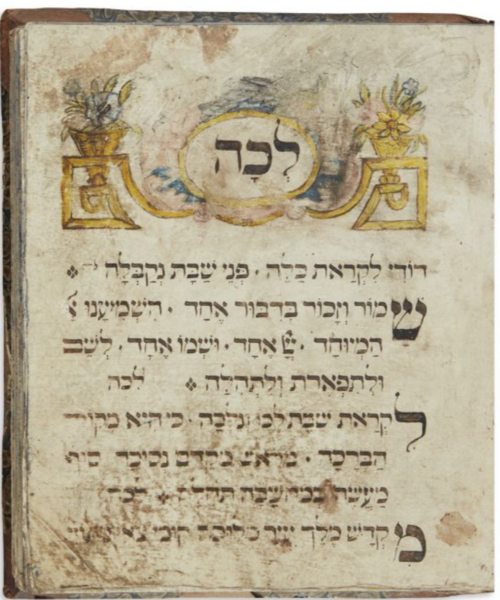 לְכָה
דודי לִקְרַאת כַּלָה · פְּנֵי שַׁבָּת נְקַבְּלָה
שמור וְזָכוֹר בְּדִבּוּר אֶחָד · הִשְׁמִיעָנוּ
הַמְיוּחָד · אֶחָד · וּשְׁמוֹ אֶחָד · לְשֵׁם
וּלְתִפְאֶרֶת וְלִתְהִלָה לכה
לקְרַאת שבת לכו ונלכה · כי היא מקור
הברכה · מראש מקדם נסוכה סוף
מעשה במחשבה תחלה לכה
מקְדַשׁ מֶלֶךְ עיר מלוכה קומי צאי